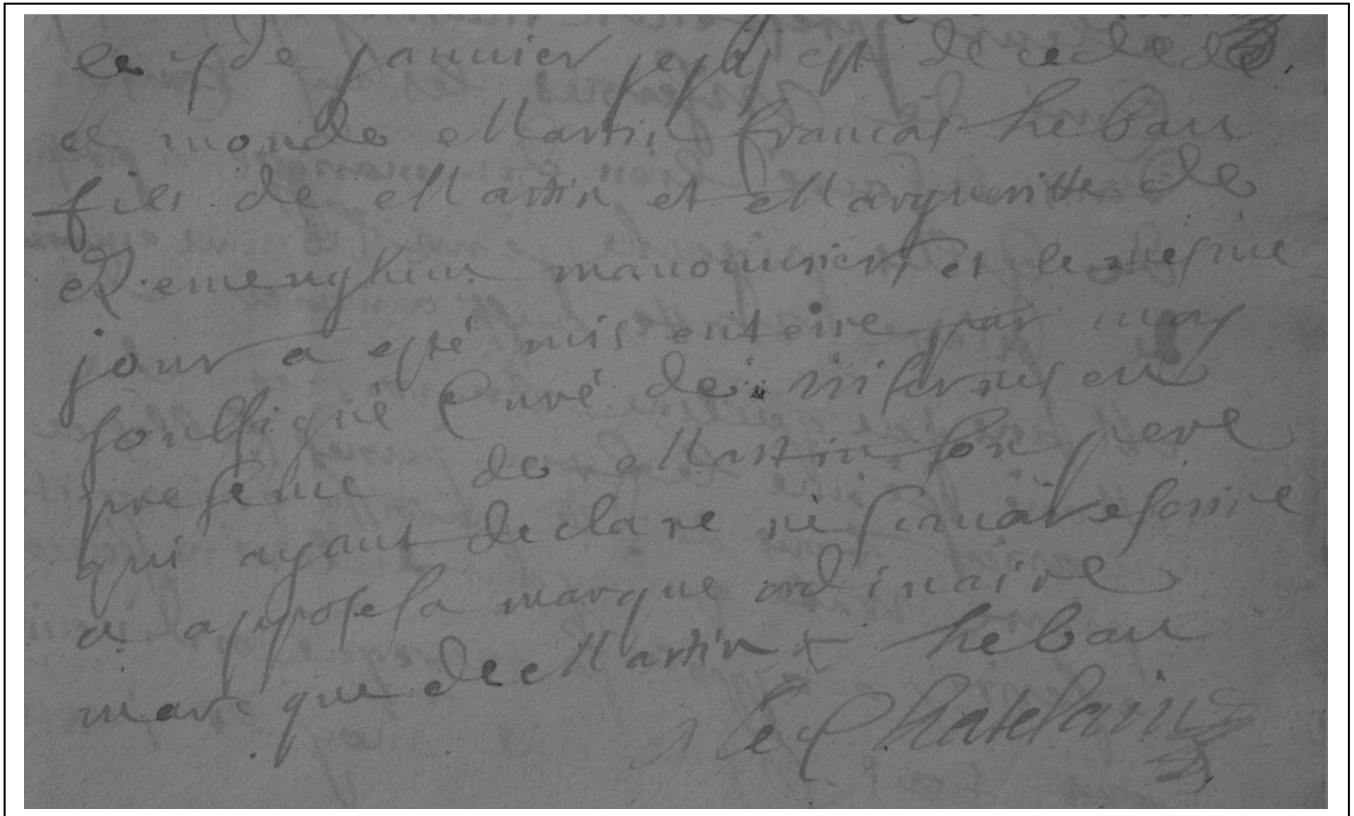 le 7 de janvier est decede de
ce monde Martin francois hebau
fils de Martin et Margueritte de
manouvriers et le mesme
jour a esté mis enterre par moy
soussigné Curé de en
presence de Martin son pere
qui ayant declare ne scavoir escrire
a apposé sa marque ordinaire
marque de Martin x hebau
le Chatelain